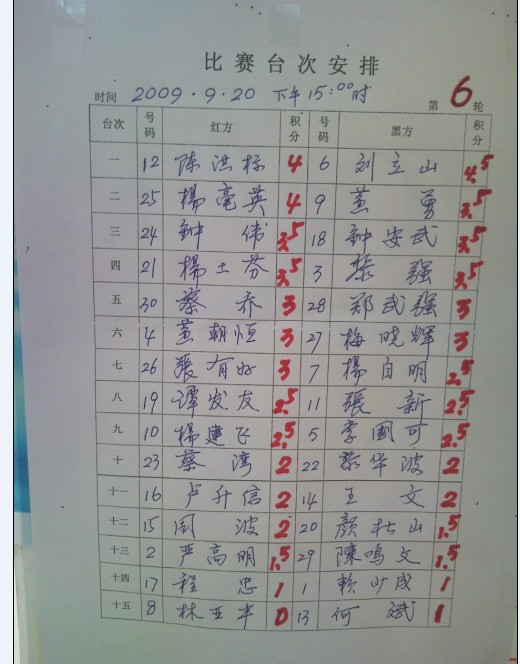 比赛台次安排
时间 2009·9·20 下午15:00时 第6轮
台次 号码 红方 积分 号码 黑方 积分
一 12 陈洪标 4 6 刘立山 4.5
二 25 楊亳英 4 9 黄勇 3.5
三 24 钟伟 3.5 18 钟安武 3.5
四 21 楊土芬 3.5 3 黎强 3.5
五 30 蔡乔 3 28 郑武强 3
六 4 黄朝恒 3 27 梅晓辉 3
七 26 張有好 3 7 楊自明 2.5
八 19 谭发友 2.5 11 張新 2.5
九 10 楊建飞 2.5 5 李國可 2.5
十 23 蔡湾 2 22 黎华波 2
十一 16 卢升信 2 14 王文 2
十二 15 周波 2 20 颜杜山 1.5
十三 2 严高明 1.5 29 陳鸣文 1.5
十四 17 程忠 1 1 赖少成 1
十五 8 林亚丰 0 13 何斌 1